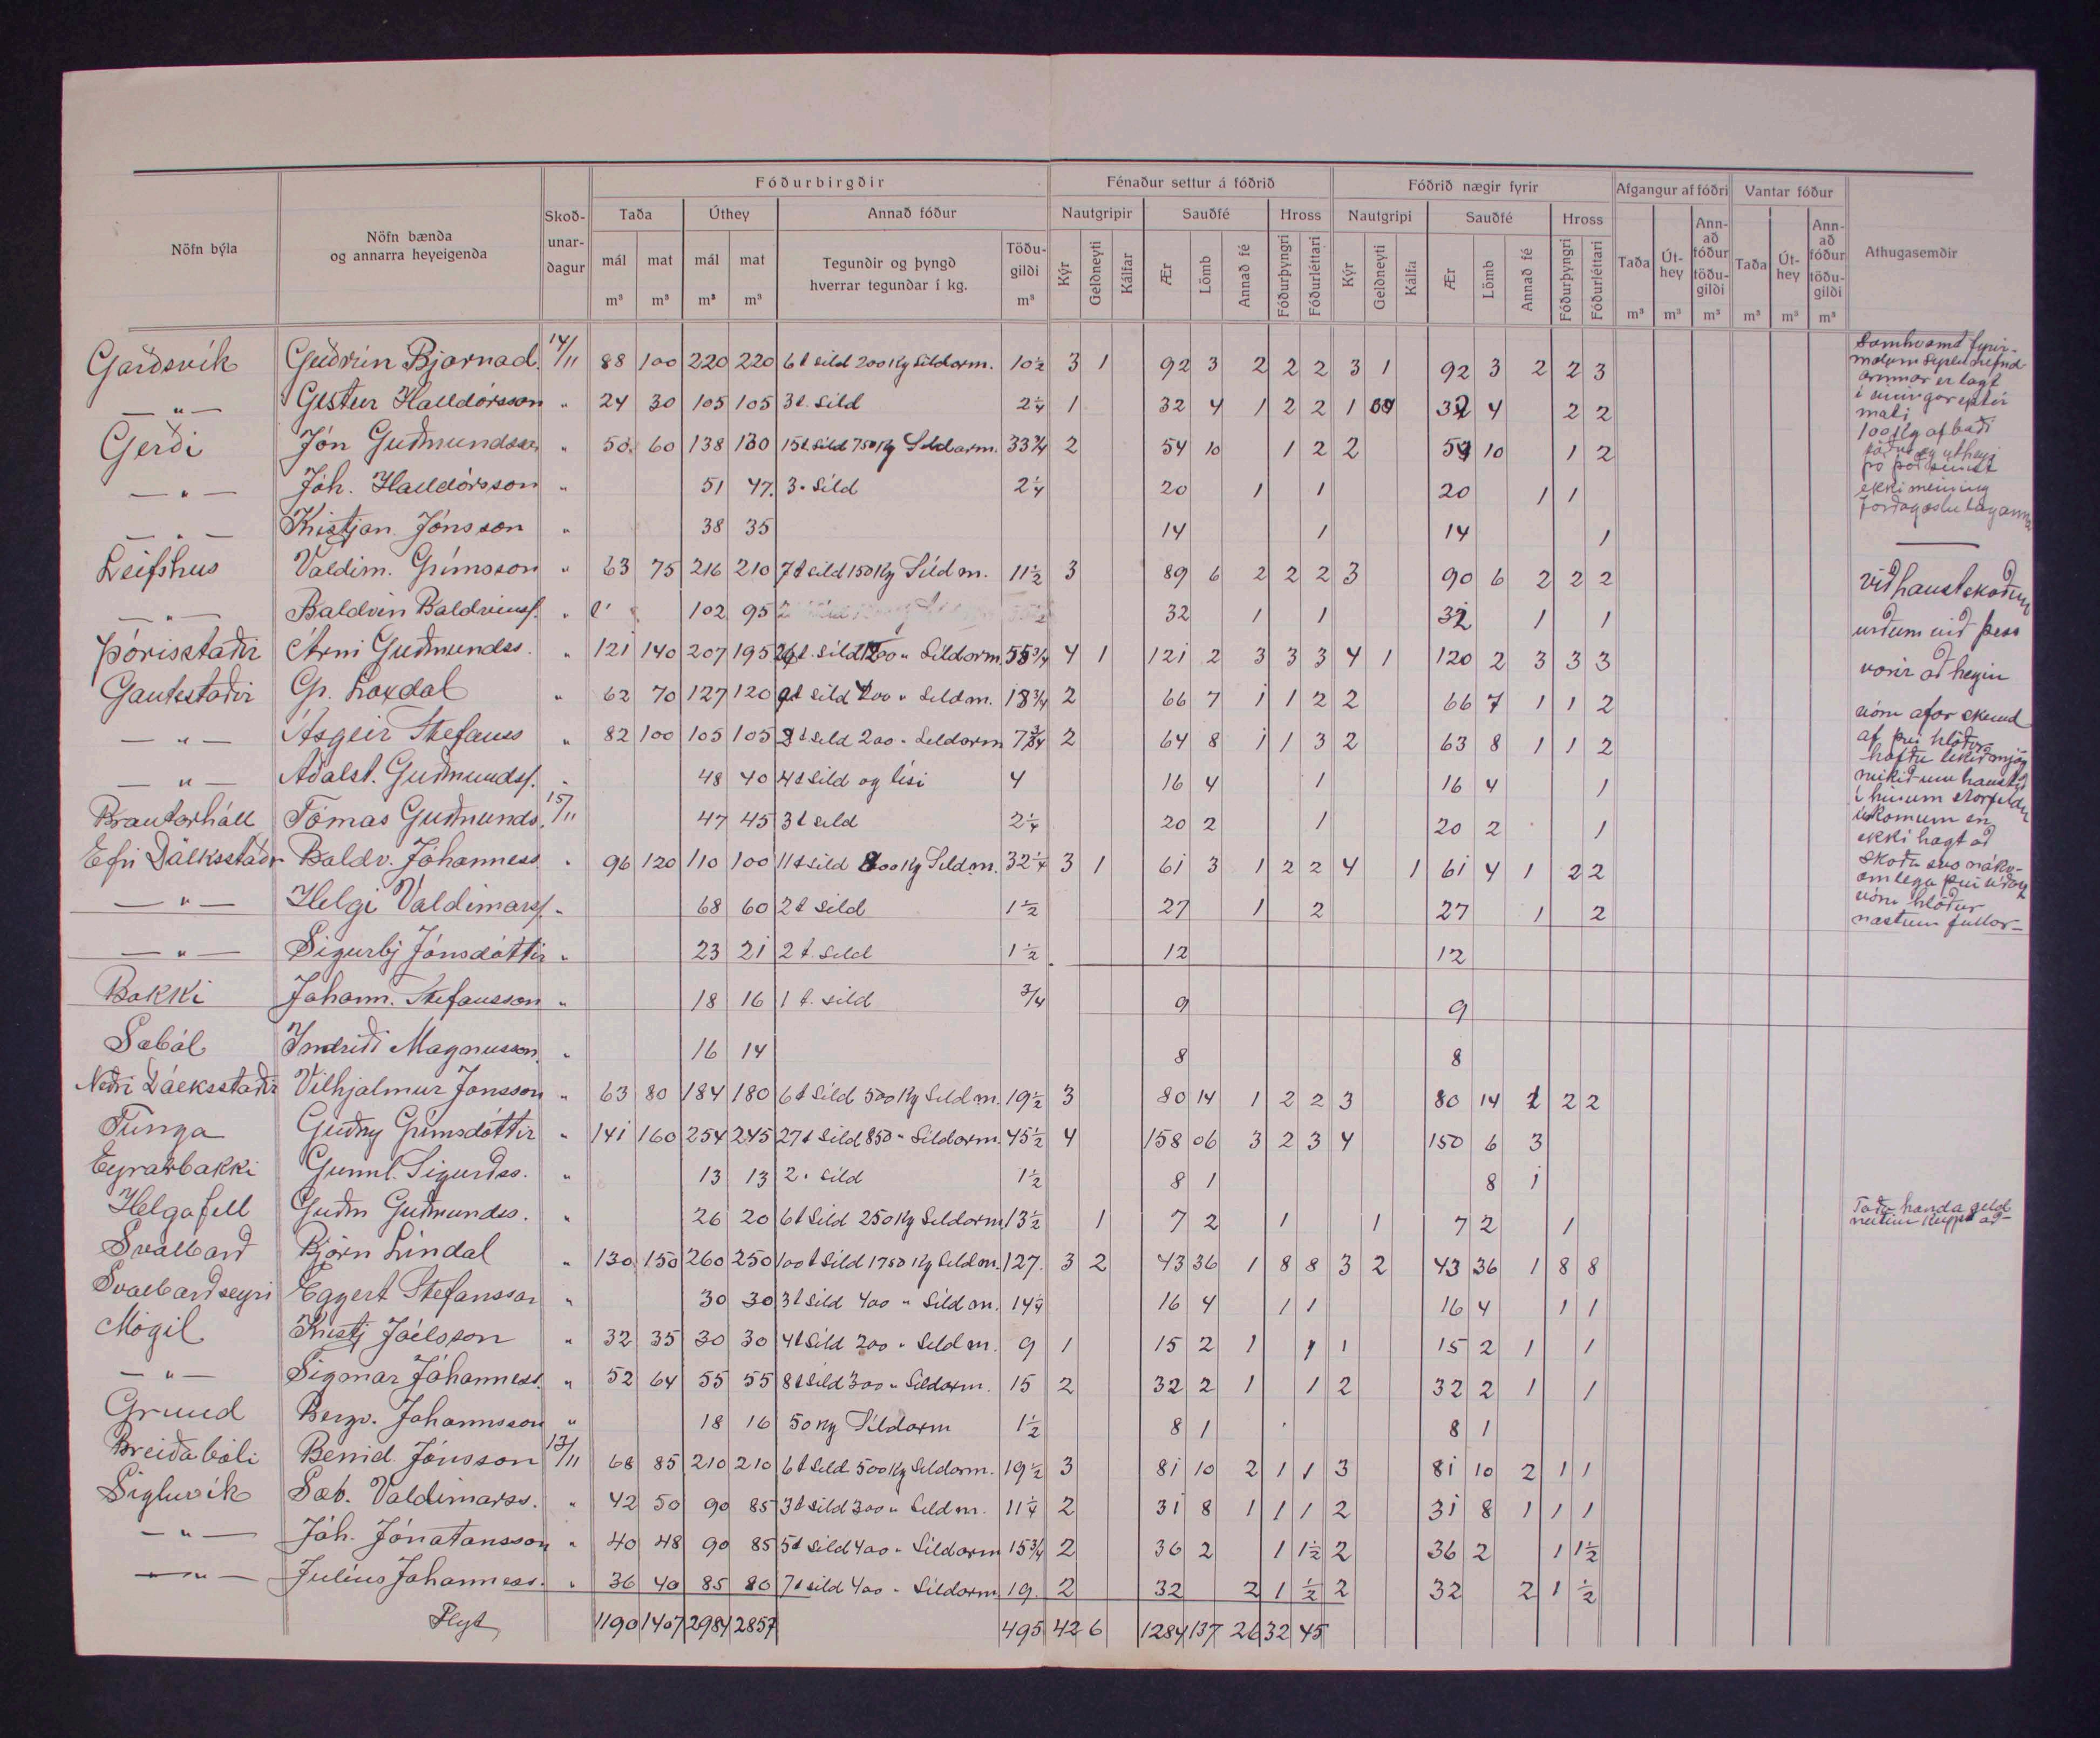 Fóðurbirgðir Fénaður settur á fóðrið Fóðrið nægir fyrir Afgangur af fóðri Vantar fóður
Nöfn býla Nöfn bænda og annarra heyeigenda Skoð-unar-dagur Taða Úthey Annað fóður Nautgripir Sauðfé Hross Nautgripi Sauðfé Hross Taða Út-hey Ann-að fóður töðu-gildi Taða Út-hey Ann-að fóður töðu-gildi Athugasemdir
mál mat mál mat Tegundir og þyngd hverrar tegundar í kg. Töðu-gildi Kýr Geldneyti Kálfar Ær Lömb Annað fé Fóðurþyngri Fóðurléttari Kýr Geldneyti Kálfa Ær Lömb Annað fé Fóðurþyngri Fóðurléttari
m³ m³ m³ m³ m³ m³ m³ m³ m³ m³ m³
Garðsvík Guðrún Bjarnad. 14/11 88 100 220 220 6t síld 200 Kg Síldarm. 10½ 3 1 92 3 2 2 2 3 1 92 3 2 2 3
— " — Gestur Halldórsson " 24 30 105 105 3t. Síld 2¼ 1 32 4 1 2 2 1 32 4 2 2
Gerði Jón Guðmundsson " 50 60 138 130 15t síld 750 Kg Síldarm. 33¾ 2 54 10 1 2 2 54 10 1 2
— " — Jóh. Halldórsson " 51 47 3 " Síld 2¼ 20 1 1 20 1 1
— " — Kristjan Jónsson " 38 35 14 1 14 1
Leifshus Valdim. Grímsson " 63 75 216 210 7t síld 150 Kg Síld m. 11½ 3 89 6 2 2 2 3 90 6 2 2 2
— " — Baldvin Baldvinss. " 102 95 32 1 1 32 1 1
Þórisstaðir Árni Guðmundss. " 121 140 207 195 26t. síld 1200 " Síldarm. 55¾ 4 1 121 2 3 3 3 4 1 120 2 3 3 3
Gautsstaðir Gr. Laxdal " 62 70 127 120 9t síld 400 " Síldm. 18¾ 2 66 7 1 1 2 2 66 7 1 1 2
— " — Ásgeir Stefanss " 82 100 105 105 2t síld 200 " Síldarm 7¾ 2 64 8 1 1 3 2 63 8 1 1 2
— " — Aðalst. Guðmundss. " 48 40 4t síld og lísi 4 16 4 1 16 4 1
Brautarhóll Tómas Guðmunds. 15/11 47 45 3t síld 2¼ 20 2 1 20 2 1
Efri Dálksstaðir Baldv. Jóhanness. " 96 120 110 100 11t síld 800 Kg Síldm. 32¼ 3 1 61 3 1 2 2 4 1 61 4 1 2 2
— " — Helgi Valdimarss. " 68 60 2t síld 1½ 27 1 2 27 1 2
— " — Sigurbj Jónsdóttir " 23 21 2t. síld 1½ 12 12
Bakki Johann. Stefansson " 18 16 1t. síld ¾ 9 9
Sæból Indriði Magnusson " 16 14 8 8
Neðri Dálksstaðir Vilhjalmur Jonsson " 63 80 184 180 6t Síld 500 Kg Síldm. 19½ 3 80 14 1 2 2 3 80 14 1 2 2
Tunga Guðny Grímsdóttir " 141 160 254 245 27t Síld 850 " Síldarm. 45½ 4 158 06 3 2 3 4 150 6 3
Eyrarbakki Gunnl. Sigurðss. " 13 13 2 " síld 1½ 8 1 8 1
Helgafell Guðm Guðmundss. " 26 20 6t Síld 250 Kg Síldarm 13½ 1 7 2 1 1 7 2 1
Svalbarð Björn Líndal " 130 150 260 250 100t Síld 1750 Kg Síldm. 127 3 2 43 36 1 8 8 3 2 43 36 1 8 8
Svalbarðseyri Eggert Stefansson " 30 30 3t Síld 400 " Síldm. 14¼ 16 4 1 1 16 4 1 1
Mógil Kristj Jóelsson " 32 35 30 30 4t Síld 200 " Síldm. 9 1 15 2 1 1 1 15 2 1 1
— " — Sigmar Jóhanness. " 52 64 55 55 8t Síld 300 " Síldarm. 15 2 32 2 1 1 2 32 2 1 1
Grund Bergv. Johannsson " 18 16 50 Kg Síldarm 1½ 8 1 8 1
Breiðaboli Benid. Jónsson 13/11 68 85 210 210 6t Síld 500 Kg Síldarm. 19½ 3 81 10 2 1 1 3 81 10 2 1 1
Sigluvík Sæb. Valdimarss. " 42 50 90 85 3t síld 300 " Síldm. 11¼ 2 31 8 1 1 1 2 31 8 1 1 1
— " — Jóh. Jónatansson " 40 48 90 85 5t síld 400 " Síldarm 15¾ 2 36 2 1 1½ 2 36 2 1 1½
— " — Julíus Johanness. " 36 40 85 80 7t síld 400 " Síldarm 19 2 32 2 1 ½ 2 32 2 1 ½
Flyt 1190 1407 2984 2857 495 42 6 1284 137 26 32 45
Samkvæmt fyrir-
mælum
er lagt
mati
100 Kg af bæði
töðu og utheyi
ekki meining
Við haustskoðun
urðum við þess
varir að heyin
vóru afar skemd
af því hlöður
höfðu lekið mjög
mikið um haustið
í hinum storfeldu
úrkomum en
ekki hægt að
skoða svo nákv-
æmlega því víðast
vóru hlöður
næstum fullar—
Taða handa geld
neitinu keypt að—